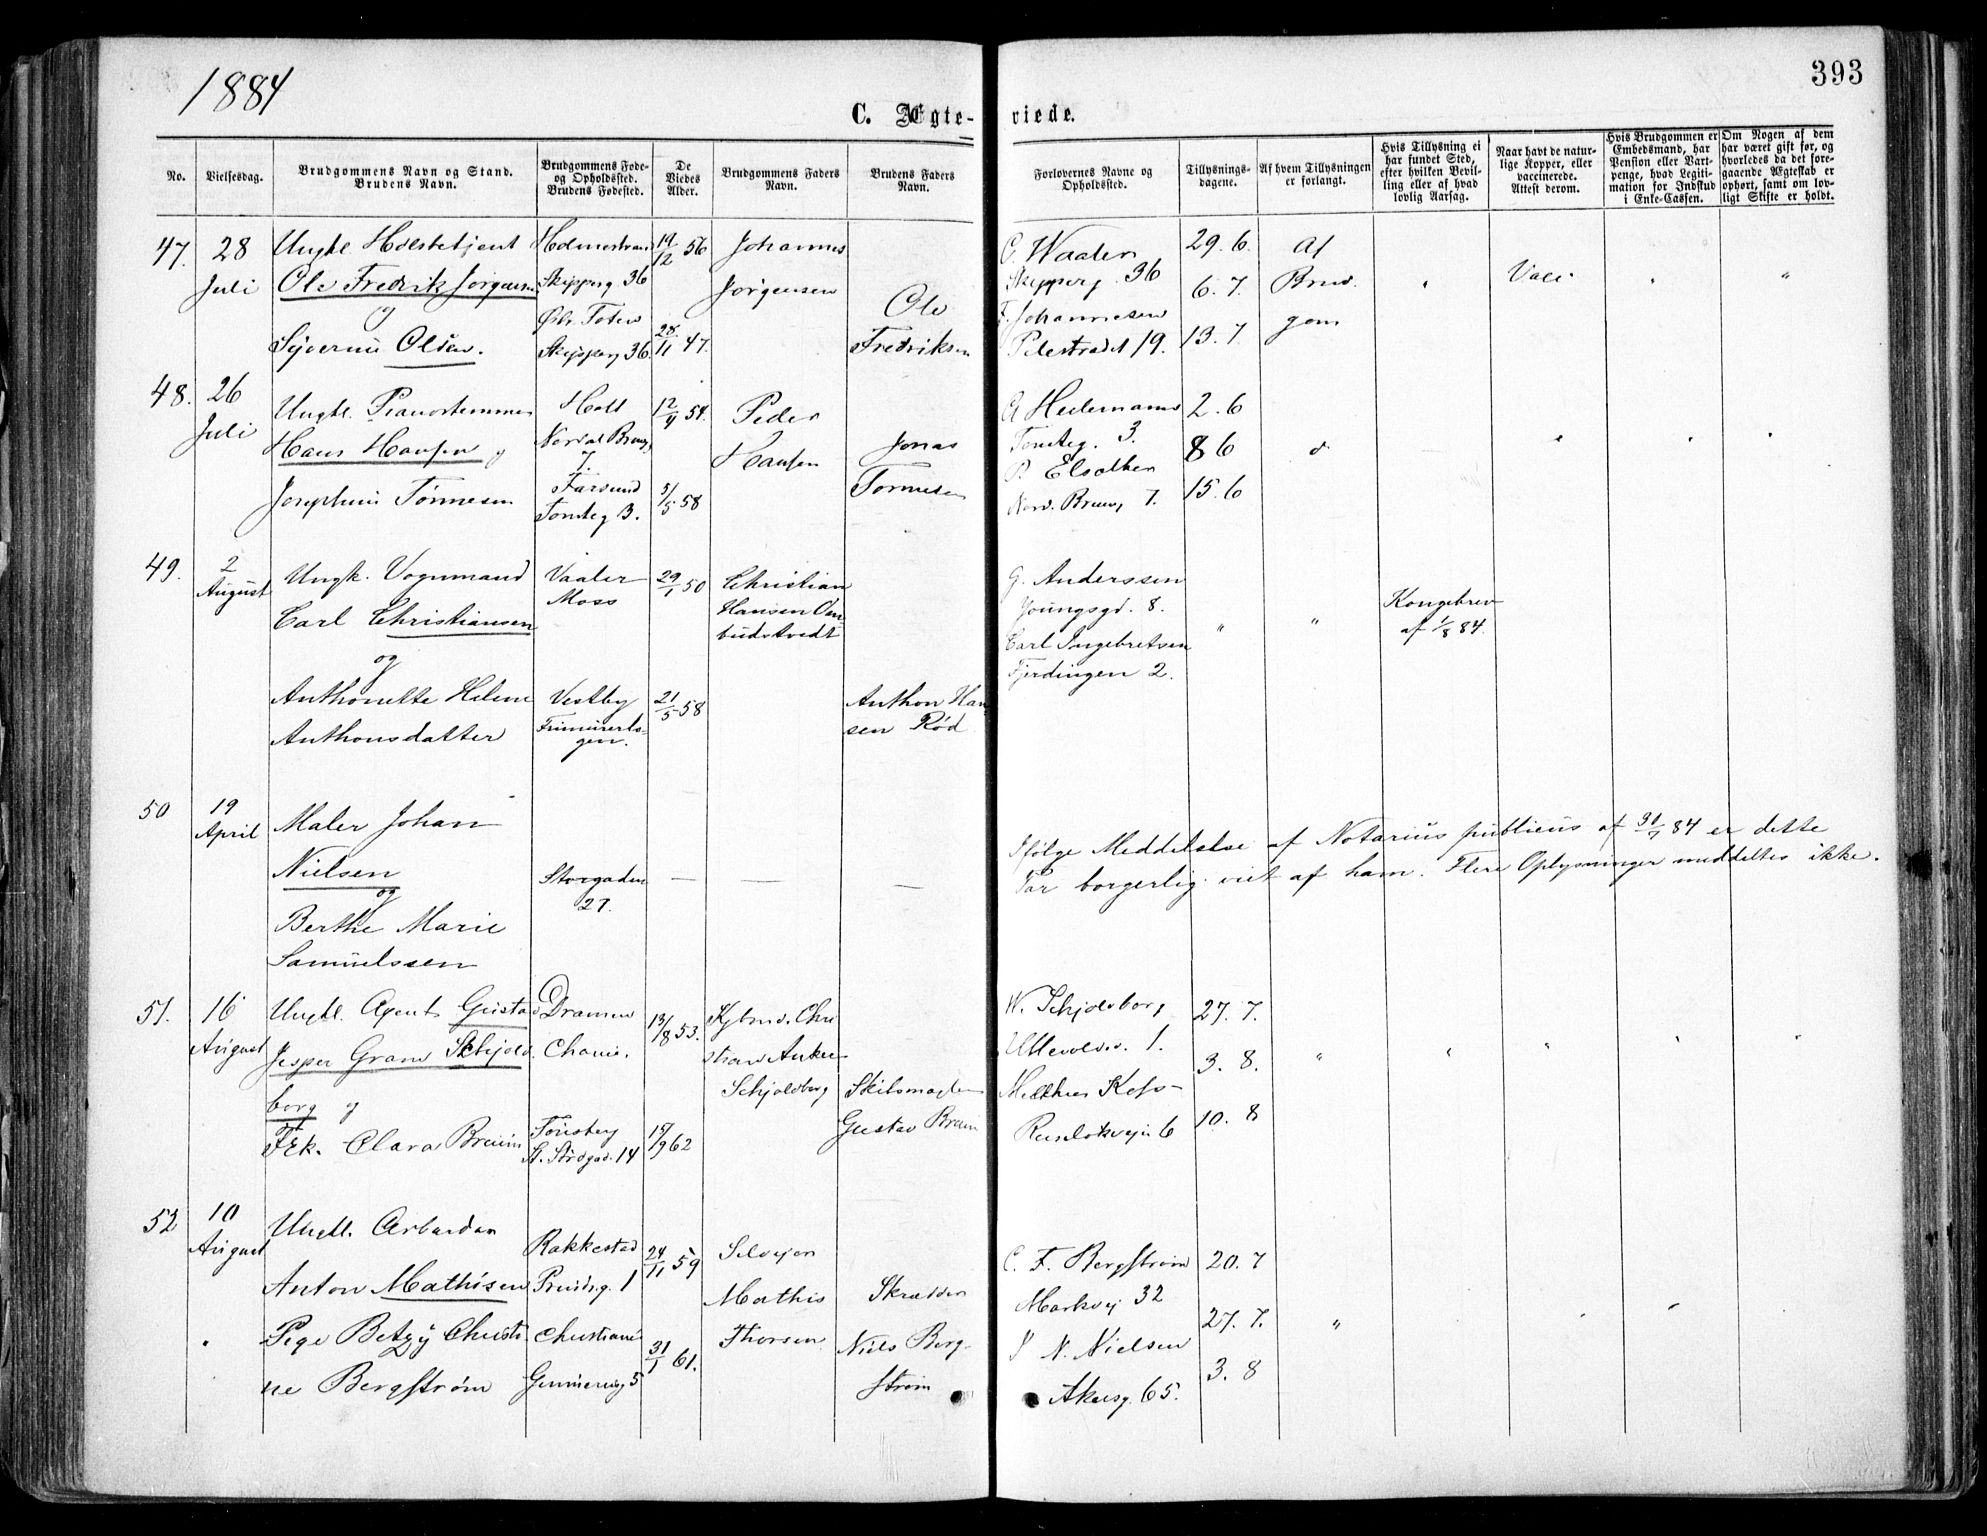 1884
393
C. Ægte-
viede.
No.
Vielsesdag.
Brudgommens Navn og Stand.
Brudens Navn.
Brudgommens Føde-
og Opholdssted.
Brudens Fødested.
De
Viedes
Alder.
Brudgommens Faders
Navn.
Brudens Faders
Navn.
Forlovernes Navne og
Opholdssted.
Tillysnings-
dagene.
Af hvem Tillysningen
er forlangt.
Hvis Tillysning ei
har fundet Sted,
efter hvilken Bevil-
ling eller af hvad
lovlig Aarsag.
Naar havt de natur-
lige Kopper, eller
vaccinerede.
Attest derom.
Hvis Brudgommen er
Embedsmand, har
Pension eller Vart-
penge, hvad Legiti-
mation for Indskud
i Enke-Cassen.
Om Nogen af dem
har været gift før, og
hvorledes da det fore-
gaaende Ægteskab er
ophørt, samt om lov-
ligt Skifte er holdt.
47.
28
Juli
Ungkl.
Ole Fredrik Jørgensen
og
Olsen.
Skipperg 36
Øst. Toten
Skipperg 36.
19/12 56
28/11 47.
Johannes
Jørgensen
Ole
Fredriksen
C. Waaler
Skipperg. 36
F. Johannesen
Pilestrædet 19.
29. 6.
6. 7.
13. 7
Af
Brud.
gom
Vacc
48.
26
Juli
Ungkl. Pianostemmer
Hans Hansen og
Josephine Tønnesen
Holt
7.
Farsund
Tomteg 3.
12/4 54.
5/5 58
Peder
Hansen
Jonas
Tønnesen
Tomteg. 3.
Nord. Brung 7.
2. 6
8 6
15. 6
49.
2
August
Ungk. Vognmand
Carl Christiansen
og
Anthonette Helene
Anthonsdatter
Vaaler
Moss
Vestby
Frimurerlo-
gen.
29/1 50
21/5 58
Christian
Hansen Om
budstvedt
Anthon Han-
sen Rød
G. Anderssen
Youngsgd. 8.
Carl Ingebretsen
Fjerdingen 2.
" "
Kongebrev
af 1/8 84.
50
19
April
Maler Johan
Nielsen
og
Berthe Marie
Samuelssen
Storgaden
27.
— — —
Ifølge Meddelelse af Notarius publicus af 30/7 84 er dette
Par borgerlig viet af ham. Flere Oplysninger meddeltes ikke.
51.
16
August
Ungkl. Agent Gustav
Jesper Gram Schjold.
borg og
Frk. Clara Bruun
Dramen
Chania.
Tønsberg
St. Stordgad. 14
13/8 53.
15/9 62
Kjbmd. Chri
stian Anker
Schjoldborg
Skibsmægler
Gustav Bruun
W. Schjoldborg
Ullevoldsv. 1.
Ruseløkvejn 6
27. 7.
3. 8.
10. 8
52
10
August
Ungkl. Arbeider
Anton Mathisen
Pige Betzy Christi
ne Bergstrøm
Rakkestad
Prindsg. 1
Christiania
5
24/11 59
31/1 61.
Selvejer
Mathis
Thorsen
Skrædder
Niels Berg-
strøm
C. F. Bergstrøm
Markvej 32
N. Nielsen
Akersg. 65.
20. 7
27. 7.
3. 8